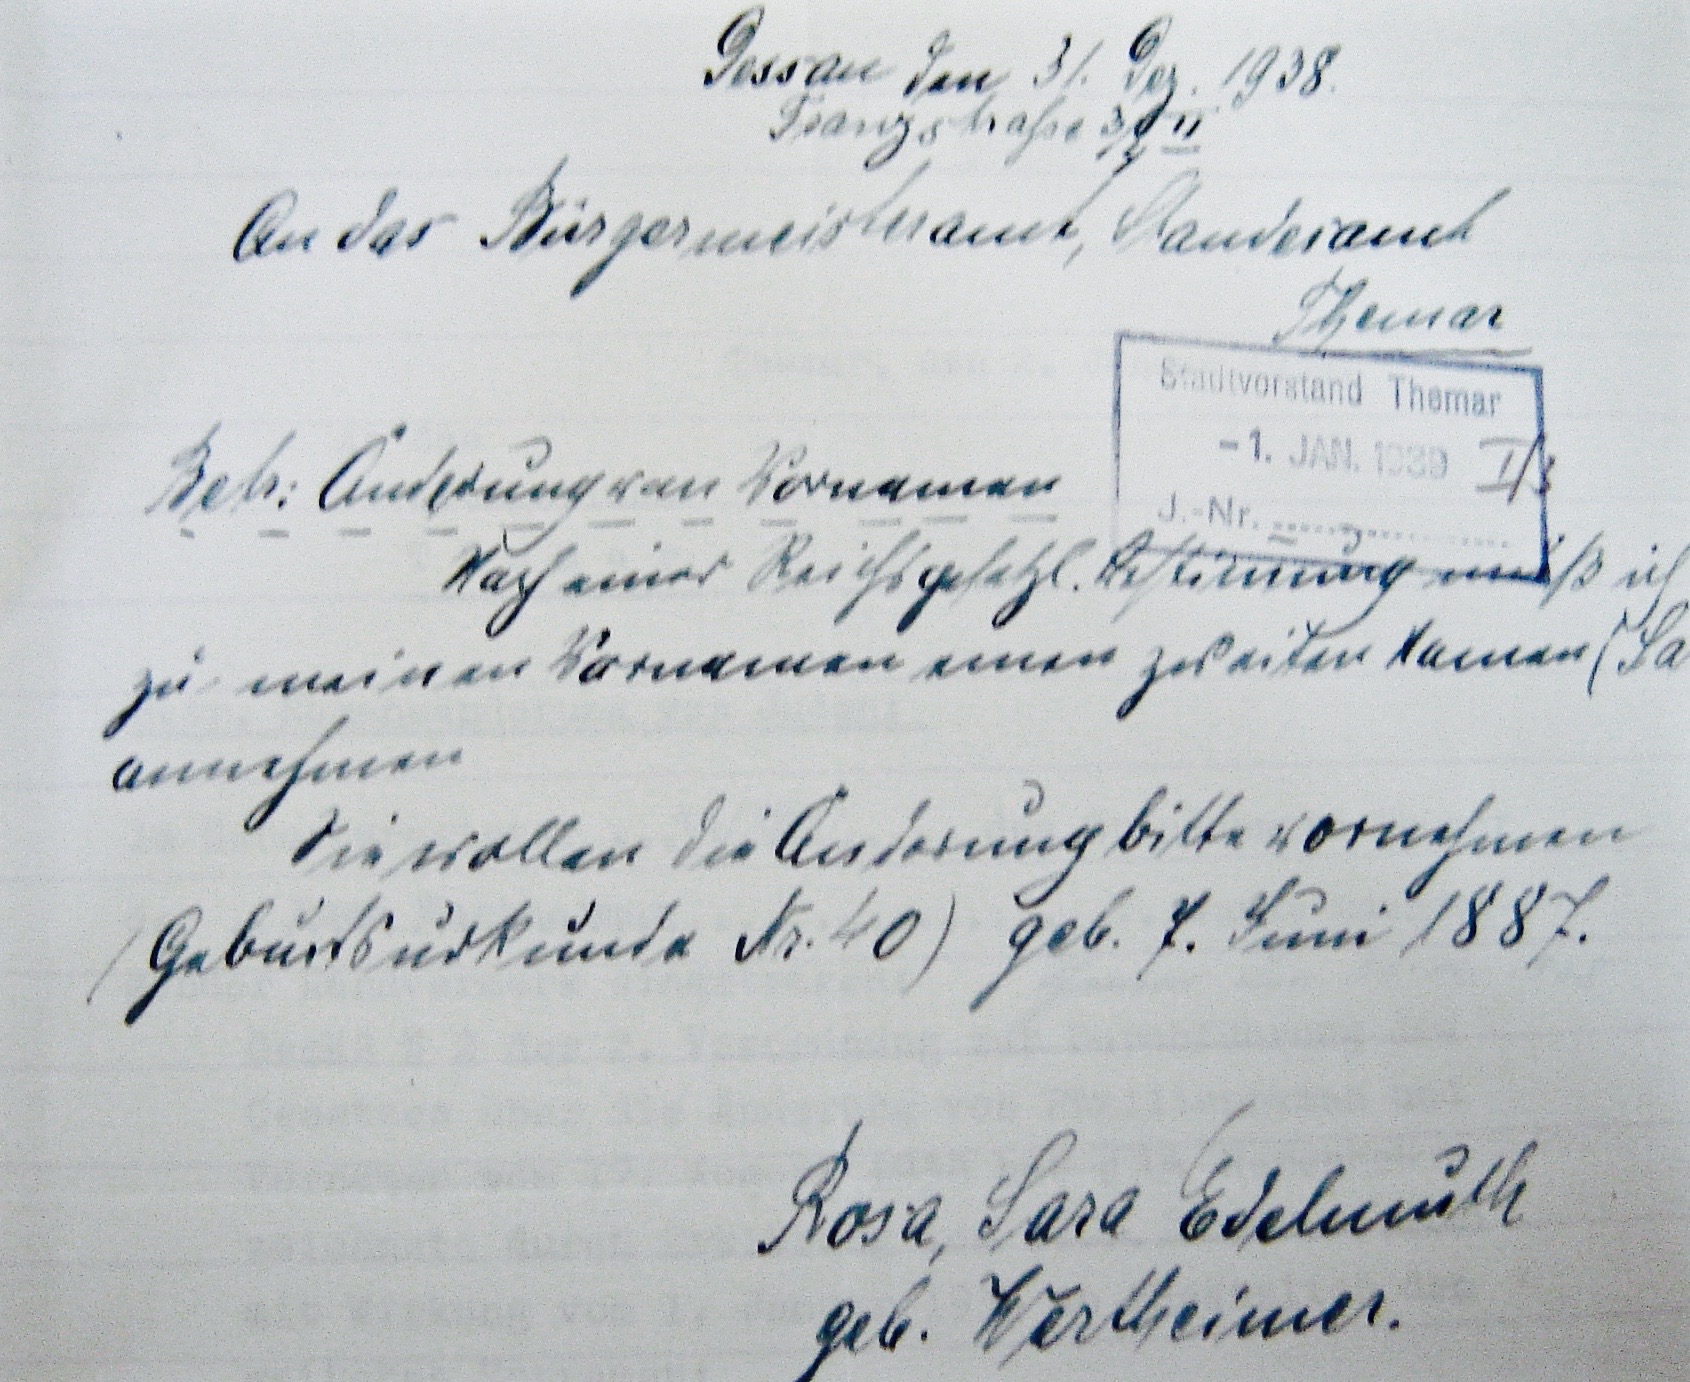 Dessau den 31. Dez. 1938.
Franzstraße II
An das Bürgermeisteramt, Standesamt
Themar
Stadtvorstand Themar
-1. JAN. 1939 I/3
J.-Nr.
Betr: Änderung von Vornamen
Nach einer Reichsgesetzl. Bestimmung muß ich
zu meinen Vornamen einen zweiten Namen (Sa
annehmen
Sie wollen die Änderung bitte vornehmen
(Geburtsurkunde Nr. 40) geb. 7. Juni 1887.
Rosa, Sara Edelmuth
geb. Wertheimer.